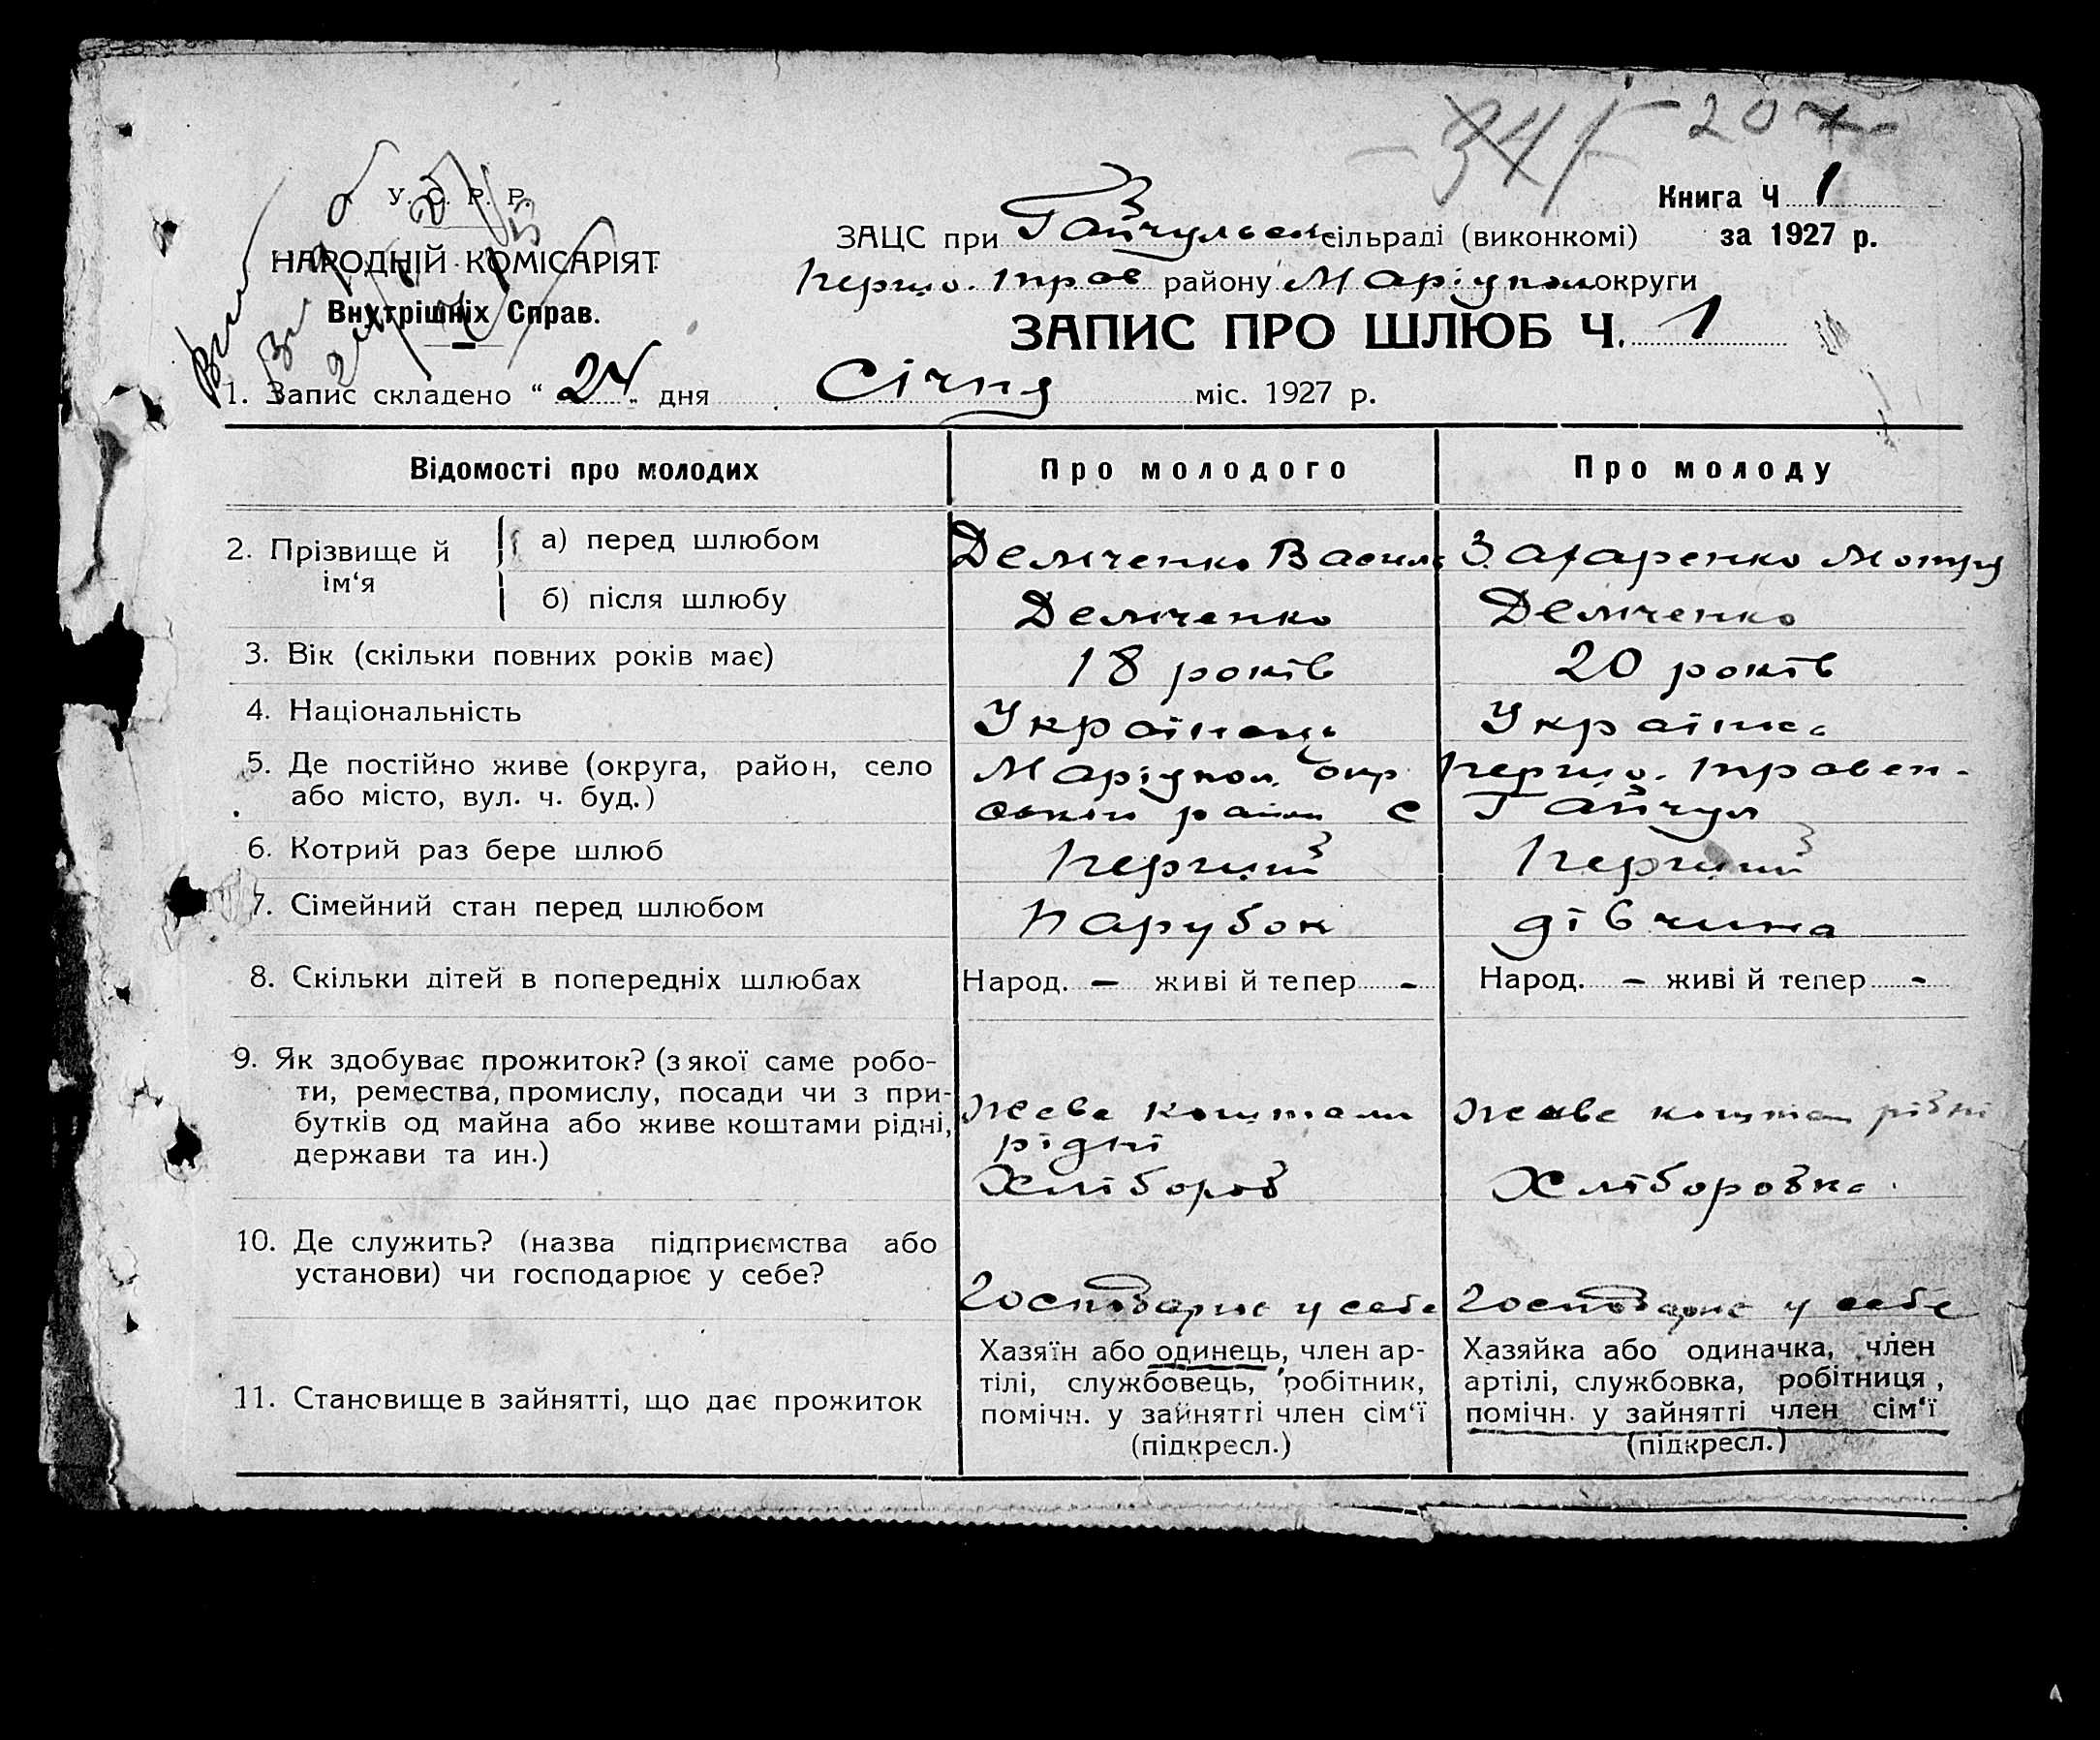 207
У. С. Р. Р.
НАРОДНІЙ КОМІСАРІЯТ
Внутрішніх Справ.
Книга Ч 1
ЗАЦС при Гайчульськ сільраді (виконкомі) за 1927 р.
Першо. Трав району Маріупол округи
ЗАПИС ПРО ШЛЮБ Ч. 1
1. Запис складено “ 24 „ дня Січня міс. 1927 р.
Відомості про молодих Про молодого Про молоду
2. Прізвище й ім‘я а) перед шлюбом Демченко Василь Захаренко Мотря
б) після шлюбу Демченко Демченко
3. Вік (скільки повних років має) 18 років 20 років
4. Національність Українець Українка
5. Де постійно живе (округа, район, село Маріупол. окр першо. травен-
або місто, вул. ч. буд.) ський район с Гайчул
6. Котрий раз бере шлюб перший перший
7. Сімейний стан перед шлюбом парубок дівчина
8. Скільки дітей в попередніх шлюбах Народ. – живі й тепер - Народ. – живі й тепер -
9. Як здобуває прожиток? (з якої саме робо-
ти, ремества, промислу, посади чи з при- живе коштами живе коштам рідні
бутків од майна або живе коштами рідні, рідні
держави та ин.) Хлібороб Хліборобка
10. Де служить? (назва підприємства або
установи) чи господарює у себе? Господарює у себе Господарює у себе
11. Становище в зайнятті, що дає прожиток
Хазяїн або одинець, член ар-
тілі, службовець, робітник,
помічн. у зайнятті член сім‘ї
(підкресл.)
Хазяйка або одиначка, член
артілі, службовка, робітниця,
помічн. у зайнятті член сім‘ї
(підкресл.)